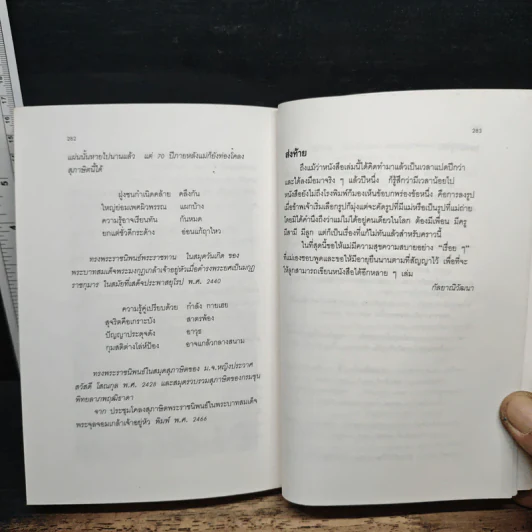 262
แผ่นนั้นหายไปนานแล้ว แต่ 70 ปีภายหลังแม่ก็ยังท่องโคลง
สุภาษิตนี้ได้
ฝูงชนกำเนิดคล้าย คลึงกัน
ใหญ่ย่อมเพศผิวพรรณ แผกบ้าง
ความรู้อาจเรียนทัน กันหมด
ยกแต่ชั่วดีกระด้าง อ่อนแก้ฤาไหว
ทรงพระราชนิพนธ์พระราชทาน ในสมุดวันเกิด ของ
พระบาทสมเด็จพระมงกุฎเกล้าเจ้าอยู่หัวเมื่อดำรงพระยศเป็นมกุฎ
ราชกุมาร ในสมัยที่เสด็จประพาสยุโรป พ.ศ. 2440
ความรู้คู่เปรียบด้วย กำลัง กายเฮย
สุจริตคือเกราะบัง ศาสตร์พ้อง
ปัญญาประดุจดัง อาวุธ
กุมสติต่างโล่ห์ป้อง อาจแกล้วกลางสนาม
ทรงพระราชนิพนธ์ในสมุดสุภาษิตของ ม.จ.หญิงประวาศ
สวัสดี โสณกุล พ.ศ. 2426 และสมุดรวบรวมสุภาษิตของกรมขุน
พิทยลาภพฤฒิธาดา
จาก ประชุมโคลงสุภาษิตพระราชนิพนธ์ในพระบาทสมเด็จ
พระจุลจอมเกล้าเจ้าอยู่หัว พิมพ์ พ.ศ. 2466
263
ส่งท้าย
ถึงแม้ว่าหนังสือเล่มนี้ได้คิดทำมาแล้วเป็นเวลาแปดปีกว่า
และได้ลงมือมาจริง ๆ แล้วปีหนึ่ง ก็รู้สึกว่ามีเวลาน้อยไป
หนังสือยังไม่ถึงโรงพิมพ์ก็มองเห็นข้อบกพร่องข้อหนึ่ง คือการลงรูป
เมื่อข้าพเจ้าเริ่มเลือกรูปก็มุ่งแต่จะคัดรูปที่มีแม่หรือเป็นรูปที่แม่ถ่าย
โดยมิได้คำนึงถึงว่าแม่ไม่ได้อยู่คนเดียวในโลก ต้องมีเพื่อน มีครู
มีสามี มีลูก แต่ก็เป็นเรื่องที่แก้ไม่ทันแล้วสำหรับคราวนี้
ในที่สุดนี้ขอให้แม่มีความสุขความสบายอย่าง “เรื่อย ๆ”
ที่แม่เองชอบพูดและขอให้มีอายุยืนนานตามที่สัญญาไว้ เพื่อที่จะ
ให้ลูกสามารถเขียนหนังสือได้อีกหลาย ๆ เล่ม
กัลยาณิวัฒนา